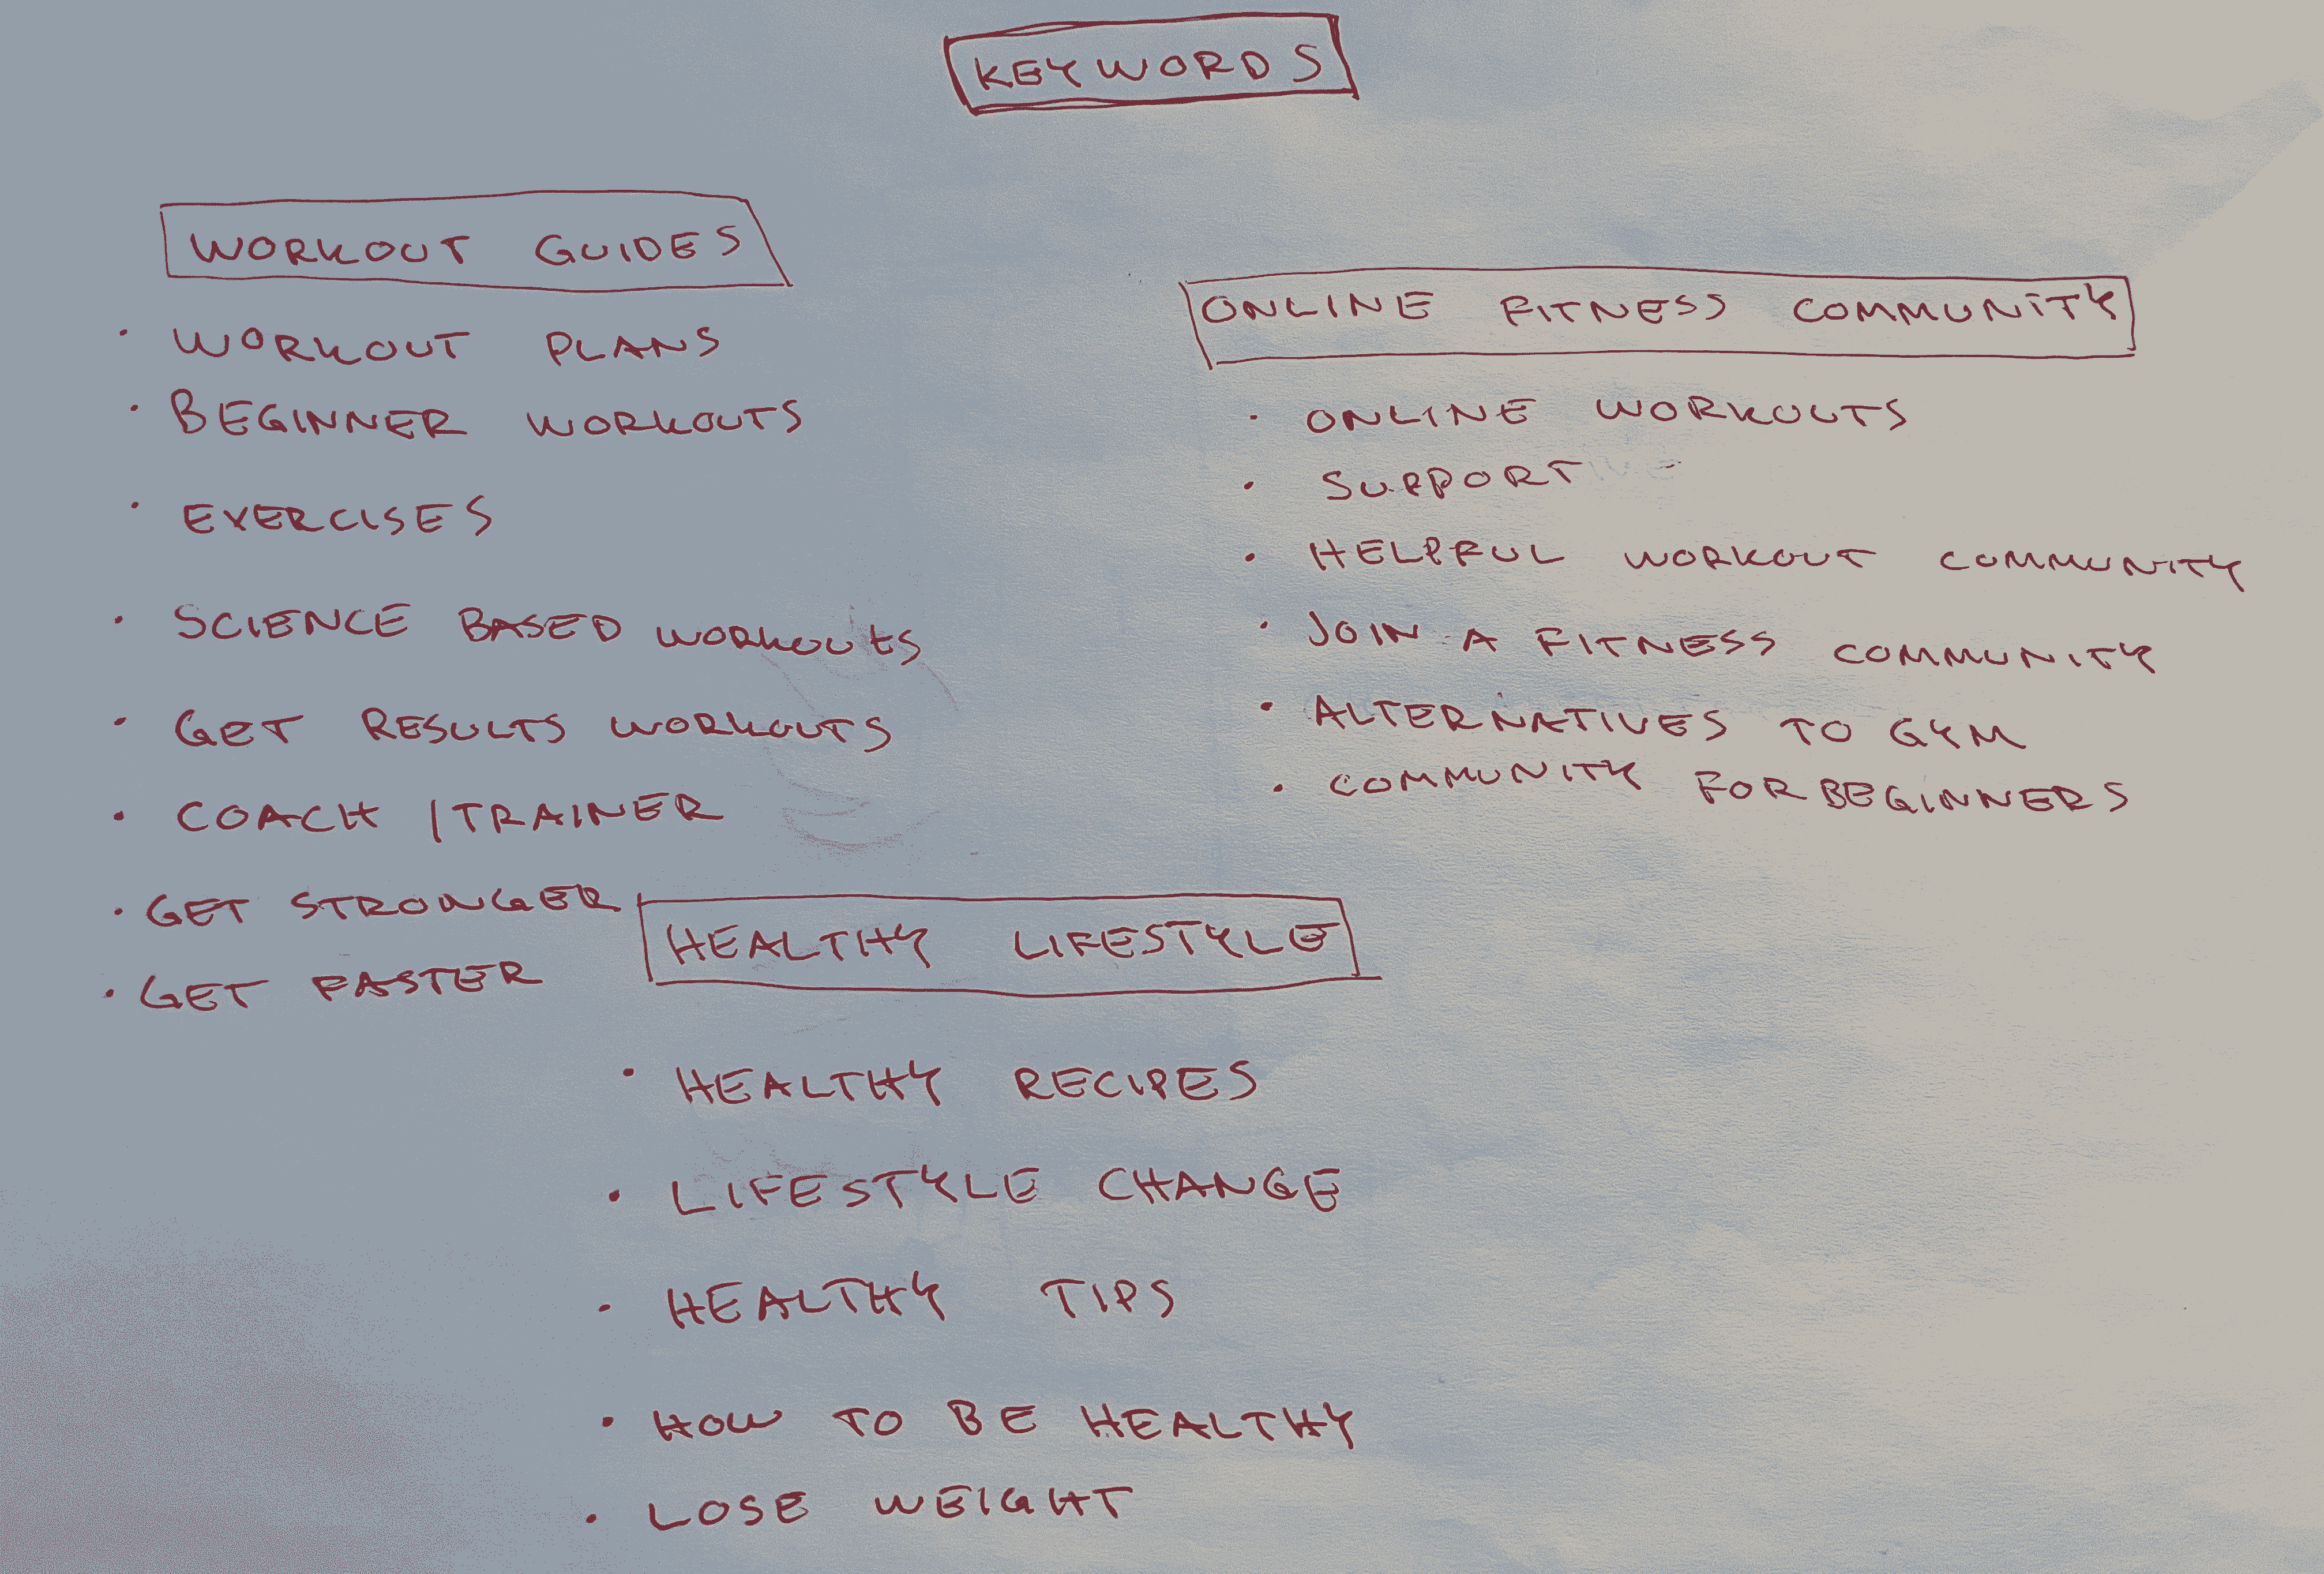 KEYWORDS
WORKOUT GUIDES
· WORKOUT PLANS
· BEGINNER WORKOUTS
· EXERCISES
· SCIENCE BASED WORKOUTS
· GET RESULTS WORKOUTS
· COACH / TRAINER
· GET STRONGER
· GET FASTER
ONLINE FITNESS COMMUNITY
· ONLINE WORKOUTS
· SUPPORT
· HELPFUL WORKOUT COMMUNITY
· JOIN A FITNESS COMMUNITY
· ALTERNATIVES TO GYM
· COMMUNITY FOR BEGINNERS
HEALTHY LIFESTYLE
· HEALTHY RECIPES
· LIFESTYLE CHANGE
· HEALTHY TIPS
· HOW TO BE HEALTHY
· LOSE WEIGHT